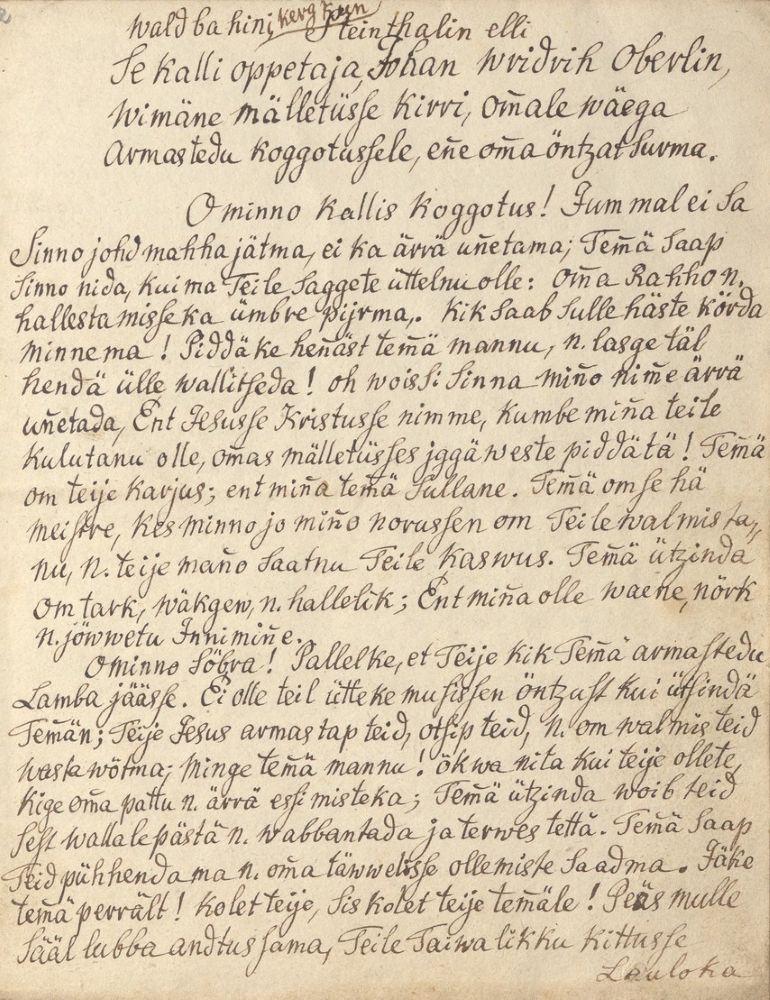 wald ba hini kerg Steinthalin elli
Se kalli oppetaja, Johan Wridrih Oberlin,
Wimäne mälletüsse kirri, om̄ale wäega
Armastedu Koggotussele, en̄e om̄a öntzat surma.
O minno kallis koggotus! Jummal ei sa
Sinno johd mahha jätma, ei ka ärrä un̄etama; Tem̄ä saap
sinno nida, kui ma Teile saggete üttelnu olle: om̄a Rahho n.
hallestamisseka ümbre pijrma,. kik saab sulle häste körda
minnema! Piddäke hen̄äst tem̄ä mannu, n. lasge täl
hendä ülle wallitseda! oh woissi sinna min̄o nim̄e ärrä
un̄etada, Ent Jesusse Kristusse nimme, kumbe min̄a teile
kulutanu olle, om̄as mälletüsses jggäweste piddätä! Tem̄ä
om teije karjus; ent min̄a tem̄ä sullane. Tem̄ä om se hä
meistre, kes minno jo min̄o norussen om Teile walmista,,
nu, n. teije man̄o saatnu Teile kaswus. Tem̄ä ützinda
om tark, wäkgew, n. hallelik; Ent min̄a olle waene, nörk
n. jöwwetu Innimin̄e.
O minno söbra! Pallelke, et Teije kik Tem̄ä armastedu
Lamba jäässe. Ei olle teil ütteke mu sissen öntzust kui ütsindä
Tem̄än; Teije Jesus armastap teid, otsip teid, n. om walmis teid
wasta wötma; Minge tem̄ä mannu! ökwa nita kui teije ollete,
kige om̄a pattu n. ärrä essimisteka; Tem̄ä ützinda woib teid
sest wallale pästä n. wabbantada ja terwes tettä. Tem̄ä saap
Teid pühhendama n. om̄a täwwelisse ollemiste saadma. Jäke
tem̄ä perrält! kolet teije, sis kolet teije tem̄äle! Peäs mulle
sääl lubba andtus sama, Teile Taiwalikku kittusse
Lauloka